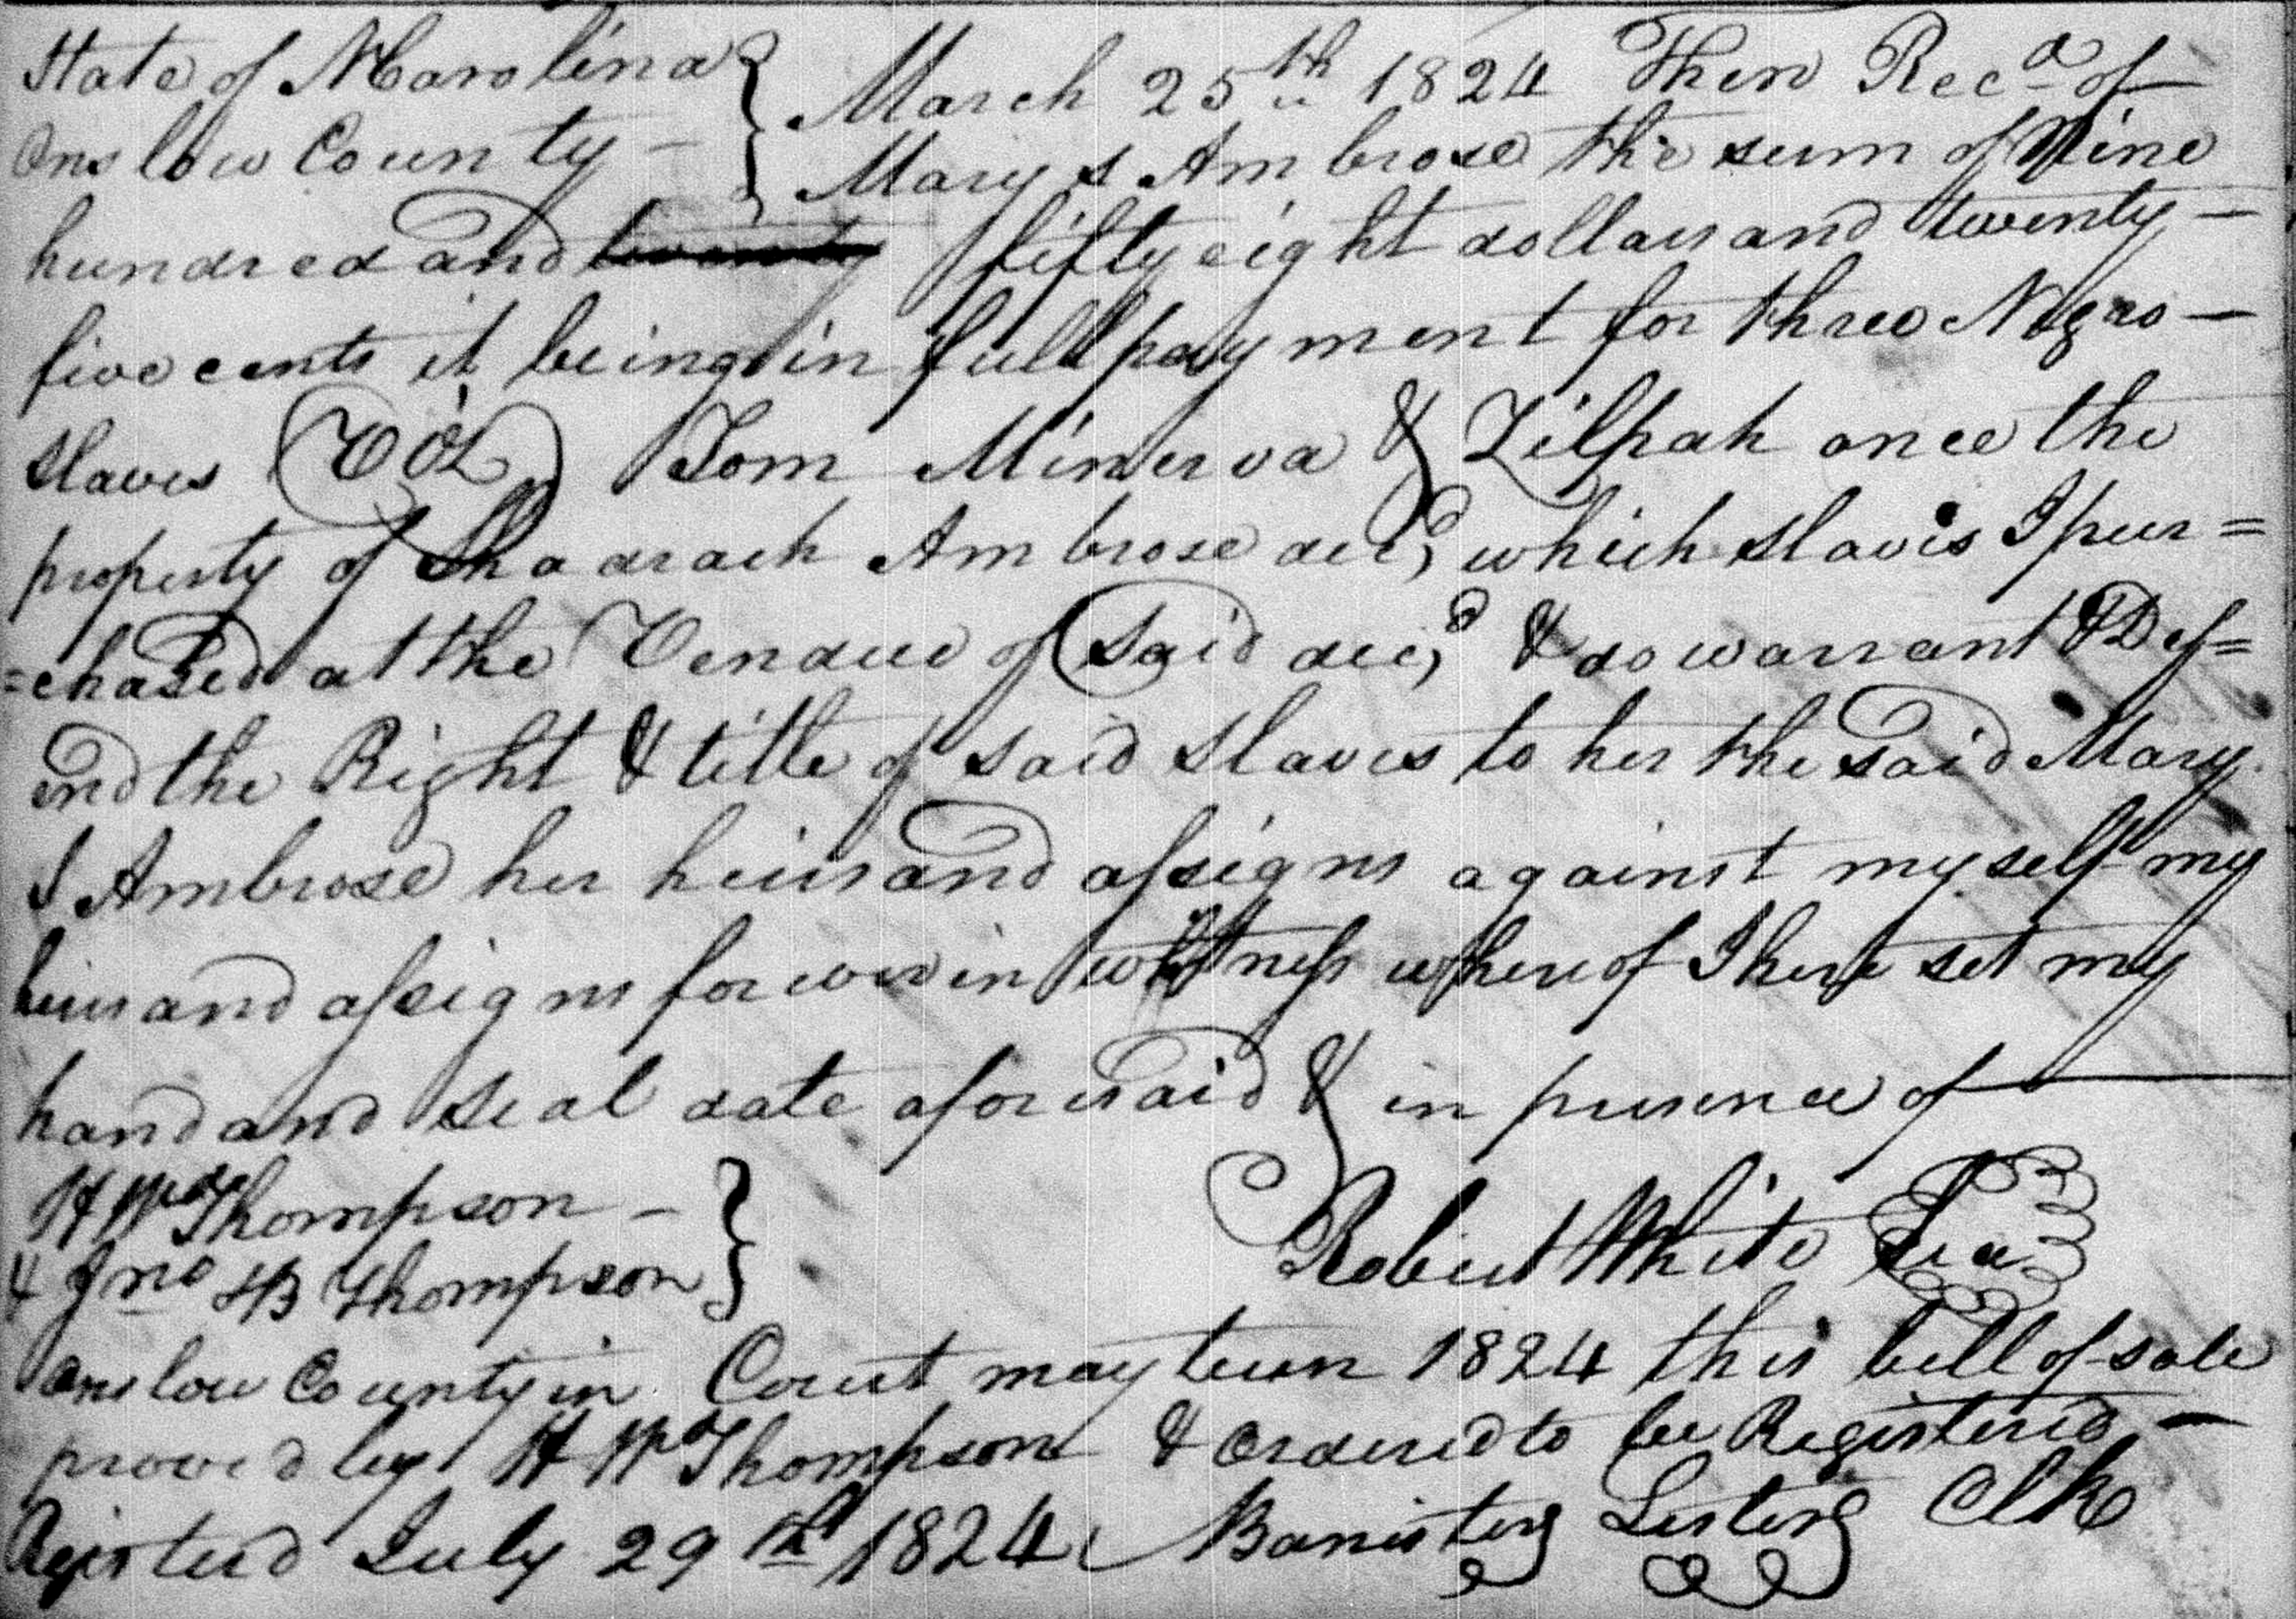 State of NCarolina } March 25th 1824 Then Recd of
Onslow County - } Mary S Ambrose the sum of Nine
hundred and twenty fifty eight dollars and twenty -
five cents it being in full payment for three Negro -
slaves (Viz) Tom Minerva & Zilpah once the
property of Shadrach Ambrose decd, which slaves I pur=
=chased at the Vendue of said decd, & do warrant & Def=
end the Right & title of said slaves to her the said Mary
S Ambrose her heirs and assigns against myself my
heirs and assigns forever in witness whereof I here set my
hand and seal date aforesaid & in presence of
H Wd Thompson - }
& Jno HB Thompson } Robert White Sea
Onslow County in Court may term 1824 this bill of sale
proved by H Wd Thompson & ordered to be Registered -
Registerd July 29th 1824 Banister Lester Clk